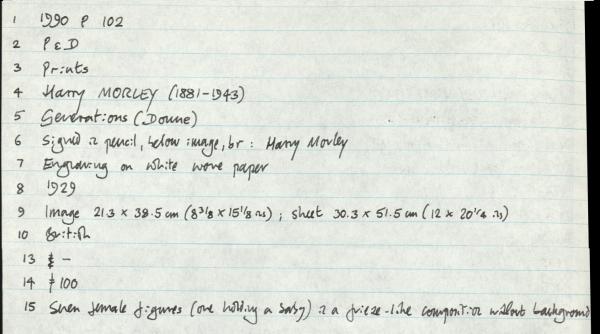 1 1990 P 102
2 P & D
3 Prints
4 Harry MORLEY (1881-1943)
5 Generations (Donne)
6 Signed in pencil, below image, br : Harry Morley
7 Engraving on white wove paper
8 1929
9 Image 21.3 x 38.5 cm (8 3/8 x 15 1/8 ins) ; sheet 30.3 x 51.5 cm (12 x 20 1/4 ins)
10 British
13 -
14 100
15 Seven female figures (one holding a baby) in a frieze-like composition without background